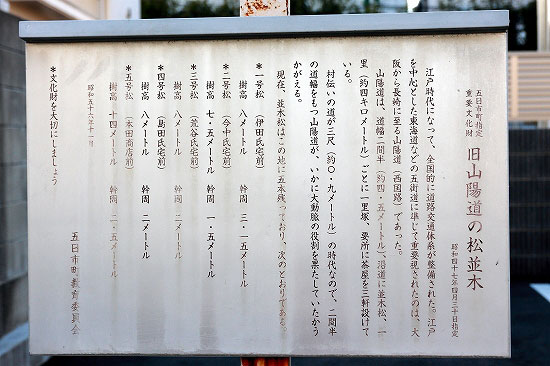 五日市町指定
重要文化財
旧山陽道の松並木
昭和四十七年四月三十日指定
江戸時代になって、全国的に道路交通体系が整備された。江戸
を中心とした東海道などの五街道に準じて重要視されたのは、大
阪から長崎に至る山陽道（西国路）であった。
山陽道は、道幅二間半（約四・五メートル）、沿道に並木松、一
里（約四キロメートル）ごとに一里塚、要所に茶屋を三軒設けて
いる。
村伝いの道が三尺（約〇・九メートル）の時代なので、二間半
の道幅をもつ山陽道が、いかに大動脈の役割を果たしていたかう
かがえる。
現在、並木松はこの地に五本残っており、次のとおりである。
＊一号松（伊田氏宅前）
樹高 八メートル 幹周 三・一五メートル
＊二号松（今中氏宅前）
樹高 七・五メートル 幹周 一・五メートル
＊三号松（荒谷氏宅前）
樹高 八メートル 幹周 二メートル
＊四号松（島田氏宅前）
樹高 八メートル 幹周 二メートル
＊五号松（本田商店前）
樹高 十四メートル 幹周 二・五メートル
昭和五十六年十一月
五日市町教育委員会
＊文化財を大切にしましょう